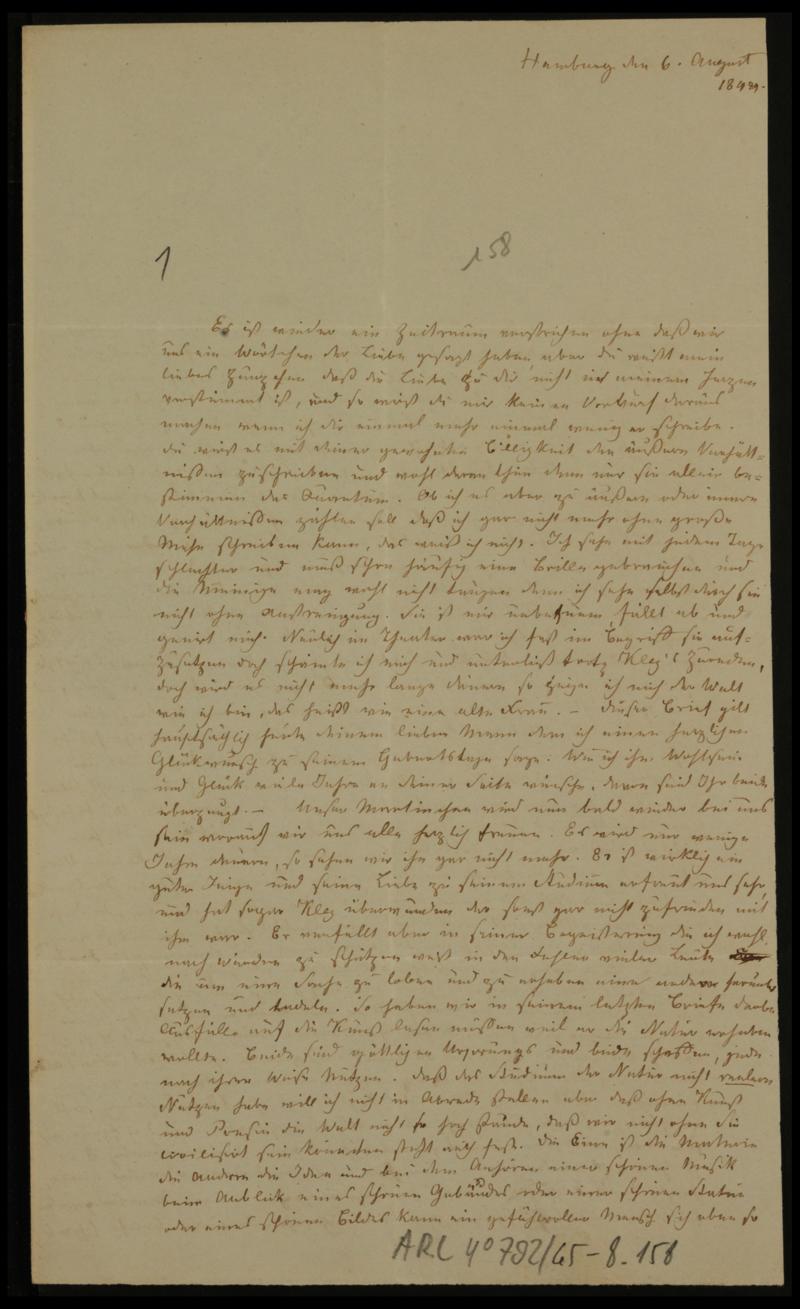 Hamburg den 6. August
184
1
158
Es ist wieder ein Zeitraum verstrichen ohne daß wir
uns ein Wörtchen der Liebe gesagt haben, aber du weißt mein
liebes daß die Liebe zu dir nicht in meinem Herzen
verstummt ist, und so wirst du mir keinen Vorwurf daraus
machen wenn ich dir einmal mehr einmal weniger schreibe.
du wirst es mit deiner gewohnten Billigkeit den äußern Verhält=
nißen zuschreiben und wohl daran thun denn nur sie allein be=
stimmen das Quantum. Ob ich es aber zu äußern oder innern
Verhältnißen zählen soll daß ich gar nicht mehr ohne große
Mühe schreiben kann, das weiß ich nicht. Ich sehe mit jedem Tage
schlechter und muß schon häufig eine Brille gebrauchen und
die Meinige mag wohl nicht taugen denn ich sehe selbst durch sie
nicht ohne Anstrengung. Sie ist mir unbequem, fällt ab und
genirt mich. Neulich im Theater war ich fest im Begriff sie auf=
zusetzen doch schämte ich mich und unterließ trotz Zureden,
doch wird es nicht mehr lange dauern so zeige ich mich der Welt
wie ich bin, das heißt wie eine alte Frau. – Dieser Brief gilt
hauptsächlich heute deinem lieben Mann dem ich einen herzlichen
Glükwunsch zu seinem Geburtstage sage. Wie ich ihm Wohlsein
und Glük viele Jahre an deiner Seite wünsche, davon seid Ihr beide
überzeugt. – Unser Martinchen wird nun bald wieder bei uns
sein worauf wir uns alle herzlich freuen. Es wird nur wenige
Jahre dauern, so sehen wir ihn gar nicht mehr. Er ist wirklich ein
guter Junge und seine Liebe zu seinem Studium erfreut uns sehr,
und hat sogar überwunden der sonst gar nicht zufrieden mit
ihm war. Er verfällt aber in seiner Begeisterung die ich wohl
nach Würden zu schätzen weiß in den Fehler vieler Leute
die um eine Sache zu loben und zu erheben eine andere herunter
setzen und tadeln. So haben wir in seinem letzten Briefe derbe
Ausfälle auf die Kunst lesen müssen weil er die Natur erheben
wollte. Beide sind göttlichen Ursprungs und beide schaffen, jede
nach ihrer Weise Nutzen. Daß das Studium der Natur nicht realeren
Nutzen habe will ich nicht in Abrede stellen aber daß ohne Kunst
und Poesie die Welt nicht so hoch stünde, daß wir nicht ohne Sie
civilisirt sein könnten steht auch fest. Die Eine ist die Materie
die Andere die Idee und bei dem Anhören einer schönen Musik
beim Anblick eines schönen Gebäudes oder einer schönen Statue
oder eines schönen Bildes kann ein gefühlvoller Mensch sich eben so
ARC 4° 792/65-8.158